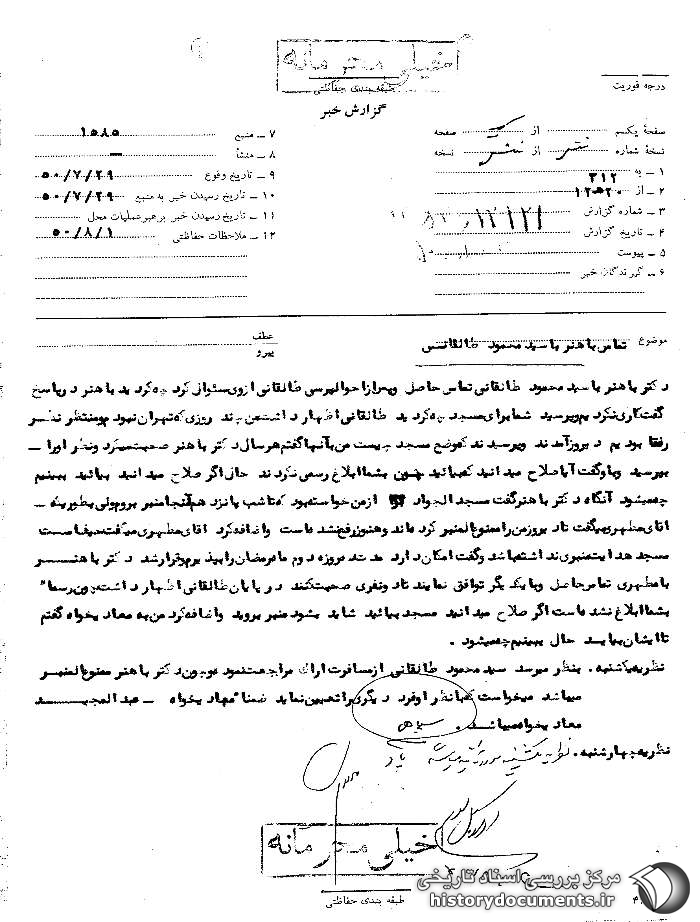 خیلی محرمانه
طبقه بندی حفاظتی
درجه فوریت
گزارش خبر
صفحهٔ یکم از یک صفحه
نسخهٔ شماره از نسخه
۱ ـ به ۳۱۲
۲ ـ از ۲۰ه۱۲
۳ ـ شماره گزارش
۴ ـ تاریخ گزارش
۵ ـ پیوست
۶ ـ گیرندگان خبر
۷ ـ منبع ۱۵۸۵
۸ ـ منشأ ـ
۹ ـ تاریخ وقوع ۵۰/۷/۲۹
۱۰ ـ تاریخ رسیدن خبر به منبع ۵۰/۷/۲۹
۱۱ ـ تاریخ رسیدن خبر برهبر عملیات محل
۱۲ ـ ملاحظات حفاظتی ۵۰/۸/۱
موضوع تماس باهنر با سید محمود طالقانی
عطف
پیرو
دکتر باهنر با سید محمود طالقانی تماس حاصل و بعد از احوالپرسی طالقانی از وی سئوال کرد چه کردید باهنر در پاسخ
گفت کاری نکردیم و پرسید شما برای مسجد چه کردید طالقانی اظهار داشت من چند روزی که تهران نبودم و منتظر نظر
رفقا بودیم دیروز آمدند و پرسیدند که وضع مسجد چیست من به آنها گفتم هر سال دکتر باهنر صحبت میکرد و نظر او را ـ
بپرسید و یا وگفت آیا صلاح میدانید که بیائید چون بشما ابلاغ رسمی نکردند حال اگر صلاح میدانید بیائید ببینیم
چه میشود آنگاه دکتر باهنر گفت مسجد الجواد از من خواسته بود که تا شب پانزدهم آنجا منبر بروم ولی بطوریکه ـ
آقای مطهری میگفت تا دیروز من را ممنوع المنبر کرده اند و هنوز رفع نشده است و اضافه کرد آقای مطهری میگفت حیف است
مسجد هدایت منبری نداشته باشد و گفت امکان دارد مدت ده روزه دوم ماه رمضان را بپذیرم و قرار شد دکتر باهنر
با مطهری تماس حاصل و با یکدیگر توافق نمایند تا دو نفری صحبت کنند در پایان طالقانی اظهار داشت چون رسماً
بشما ابلاغ نشده است اگر صلاح میدانید مسجد بیائید شاید بشود منبر بروید و اضافه کرد من به معادیخواه گفتم
تا ایشان بیاید حال ببینیم چه میشود .
نظریه یکشنبه . بنظر میرسد سید محمود طالقانی از مسافرت اراک مراجعت نموده و چون دکتر باهنر ممنوع المنبر
میباشد میخواست که با نظر او فرد دیگری را تعیین نماید ضمناً معادیخواه ـ عبدالمجید
معادیخواه میباشد .
نظریه چهارشنبه . نظریه یکشنبه مورد تأیید میباشد
خیلی محرمانه
طبقه بندی حفاظتی
مرکز بررسی اسناد تاریخی
historydocuments.ir